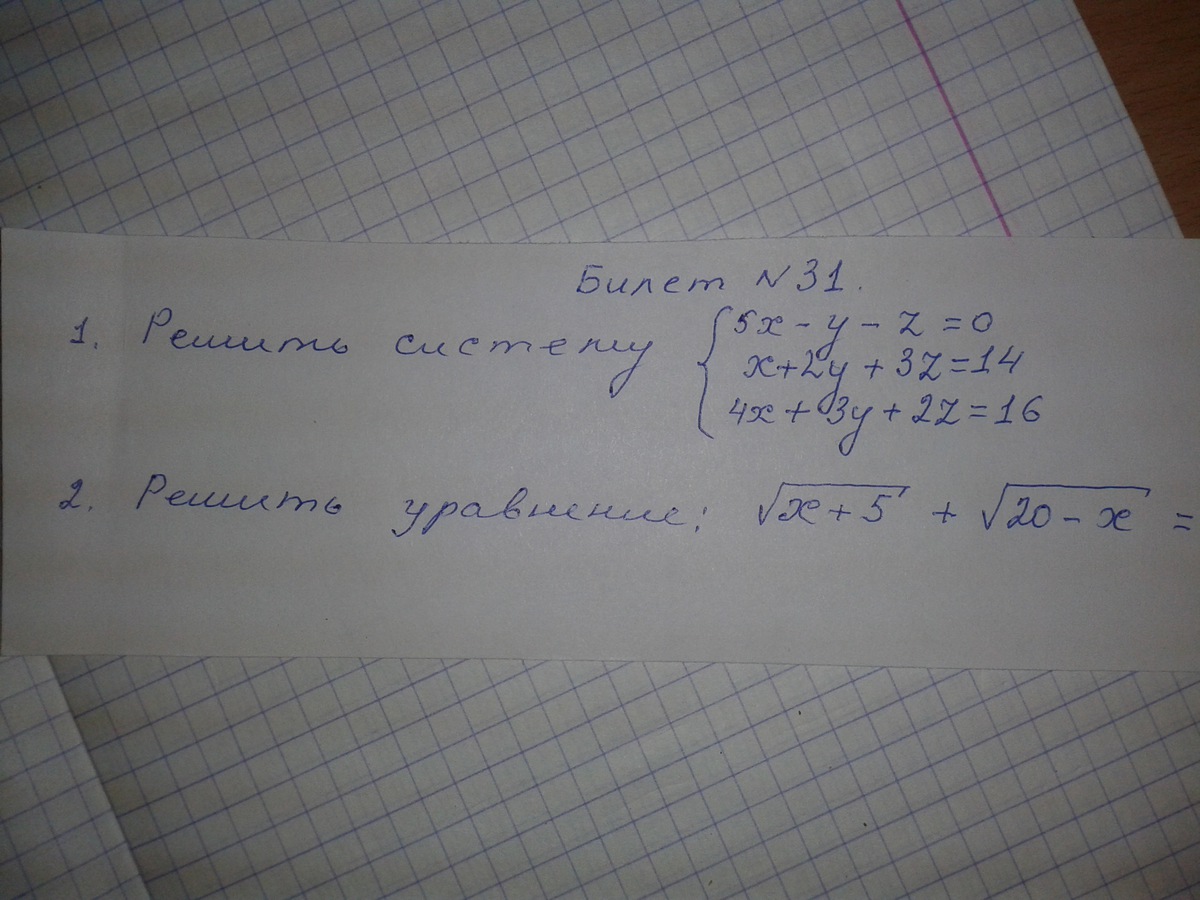 Билет N 31.
1. Решить систему { 5x - y - z = 0
x + 2y + 3z = 14
4x + 3y + 2z = 16
2. Решить уравнение; √x + 5 + √20 - x =